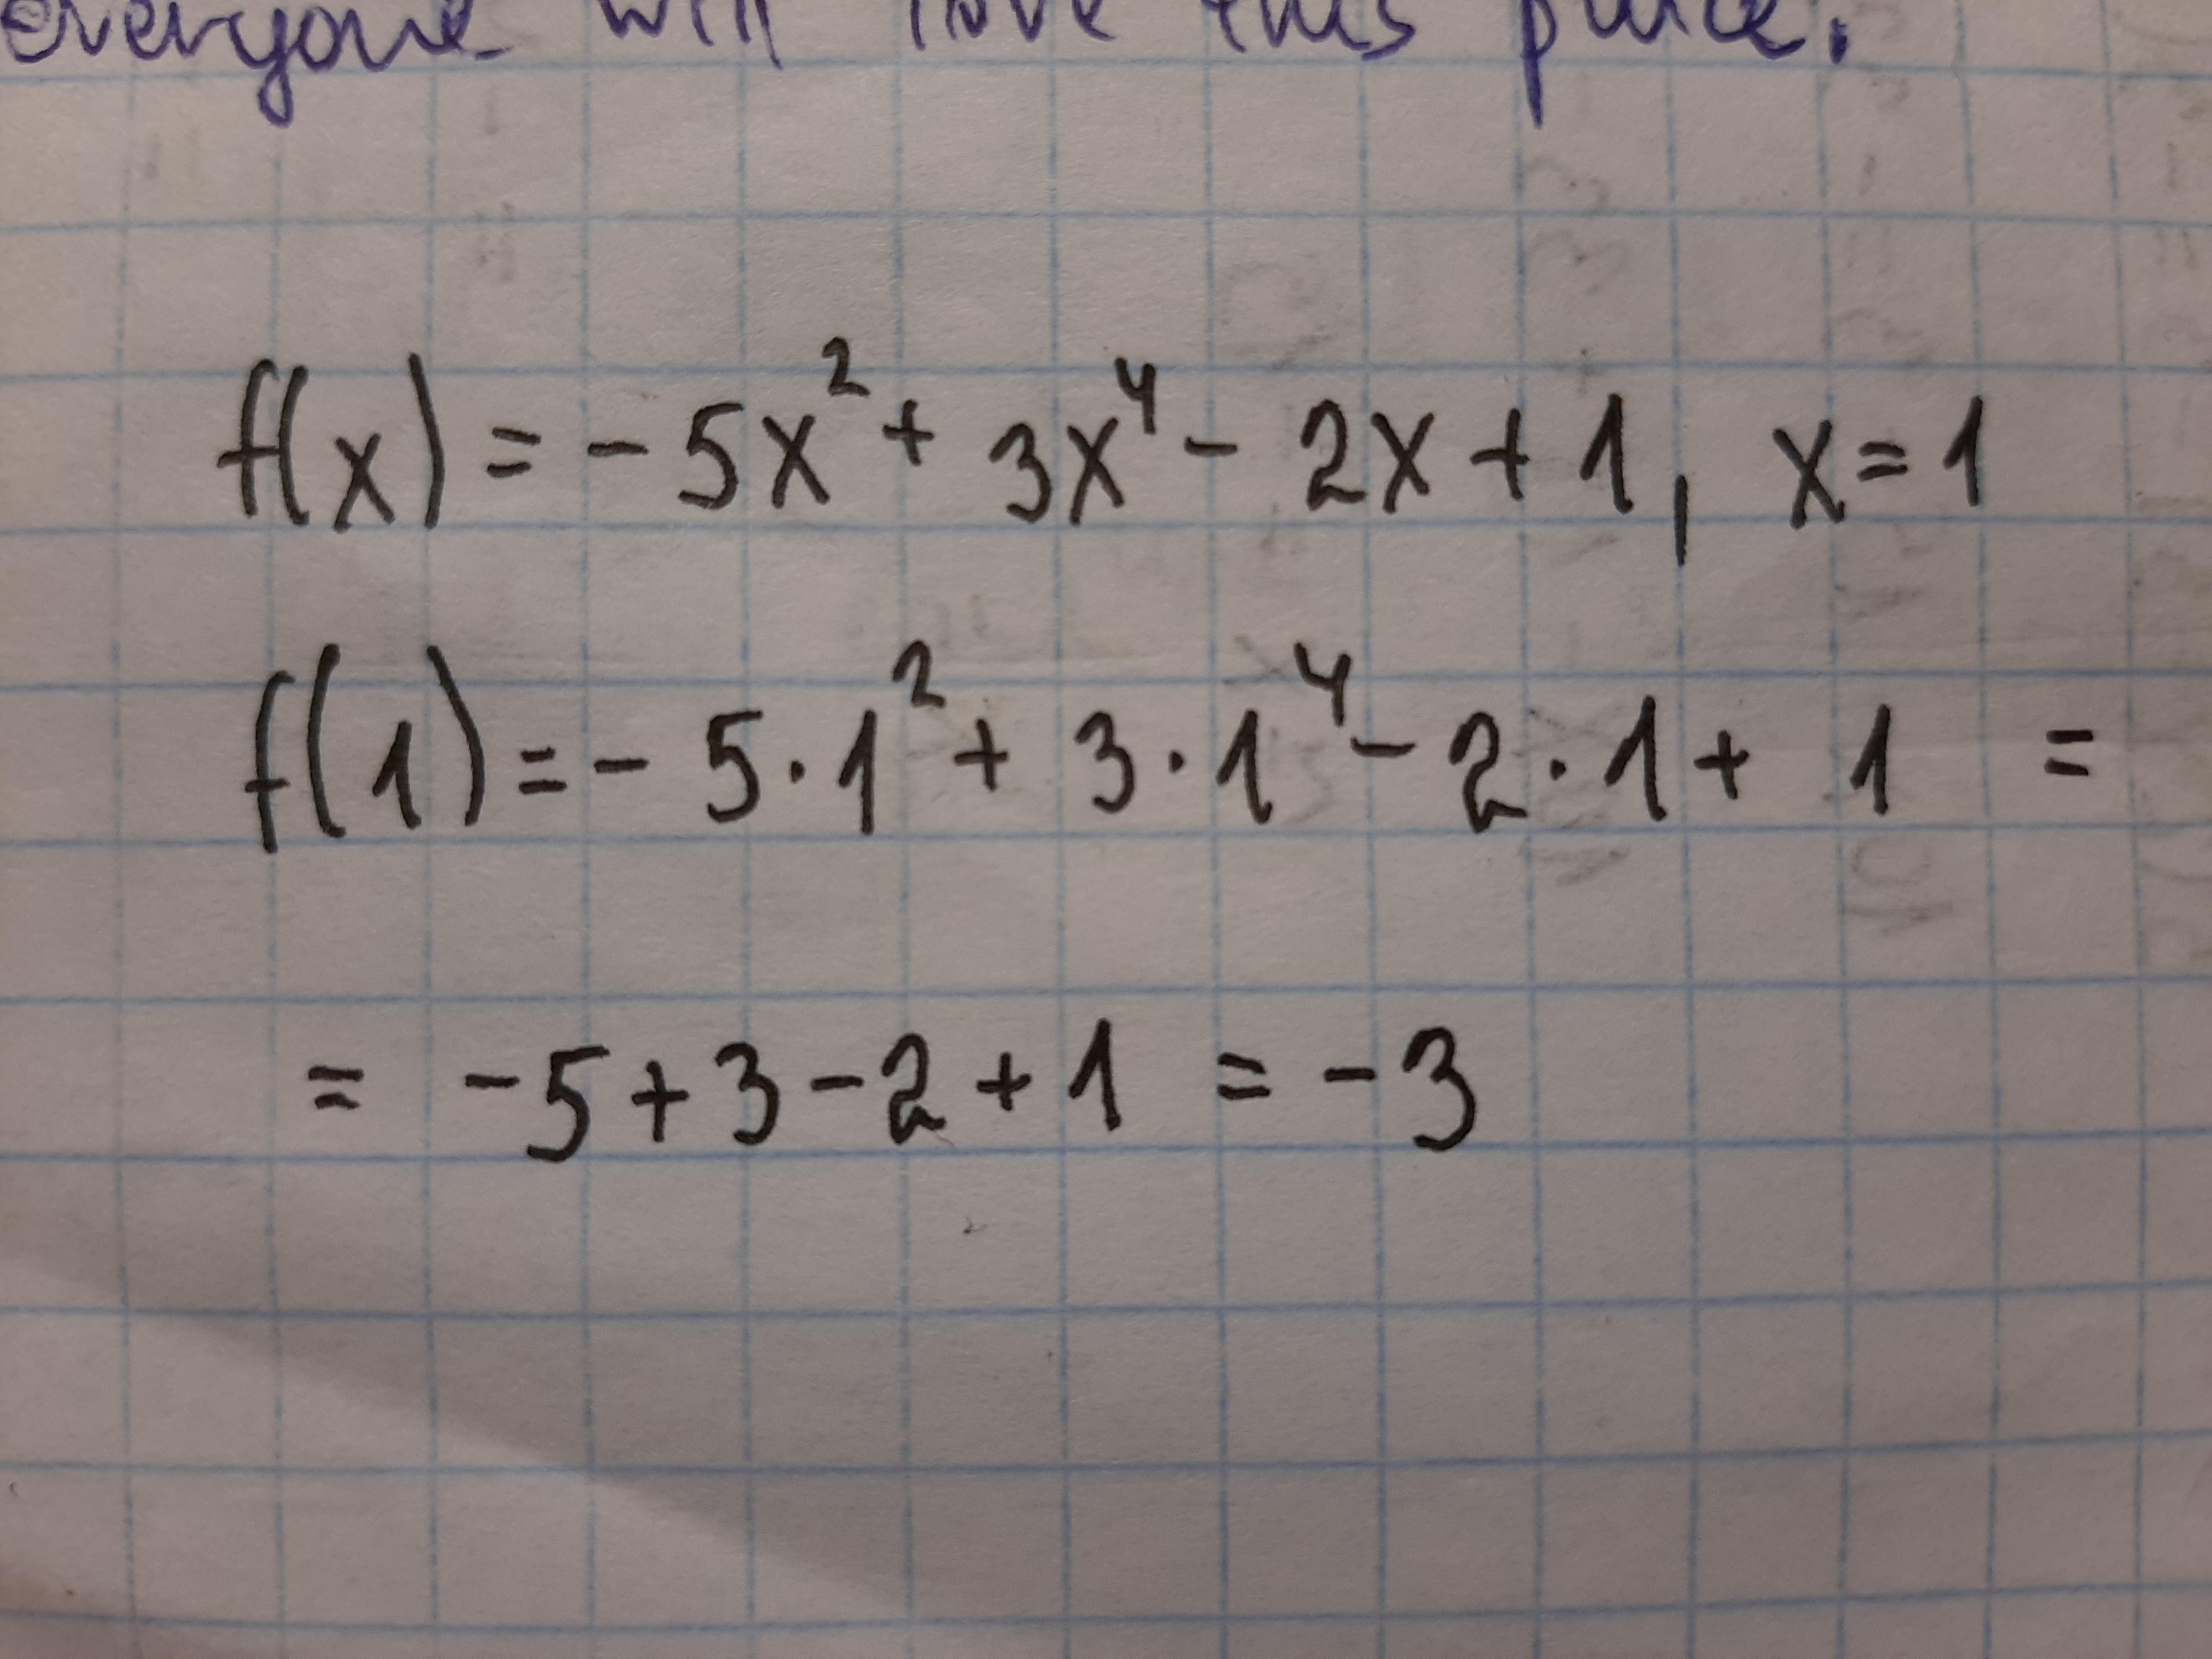 everyone will love this place.
f(x) = - 5x² + 3x⁴ - 2x + 1, x = 1
f(1) = - 5 · 1² + 3 · 1⁴ - 2 · 1 + 1 =
= -5 + 3 - 2 + 1 = -3